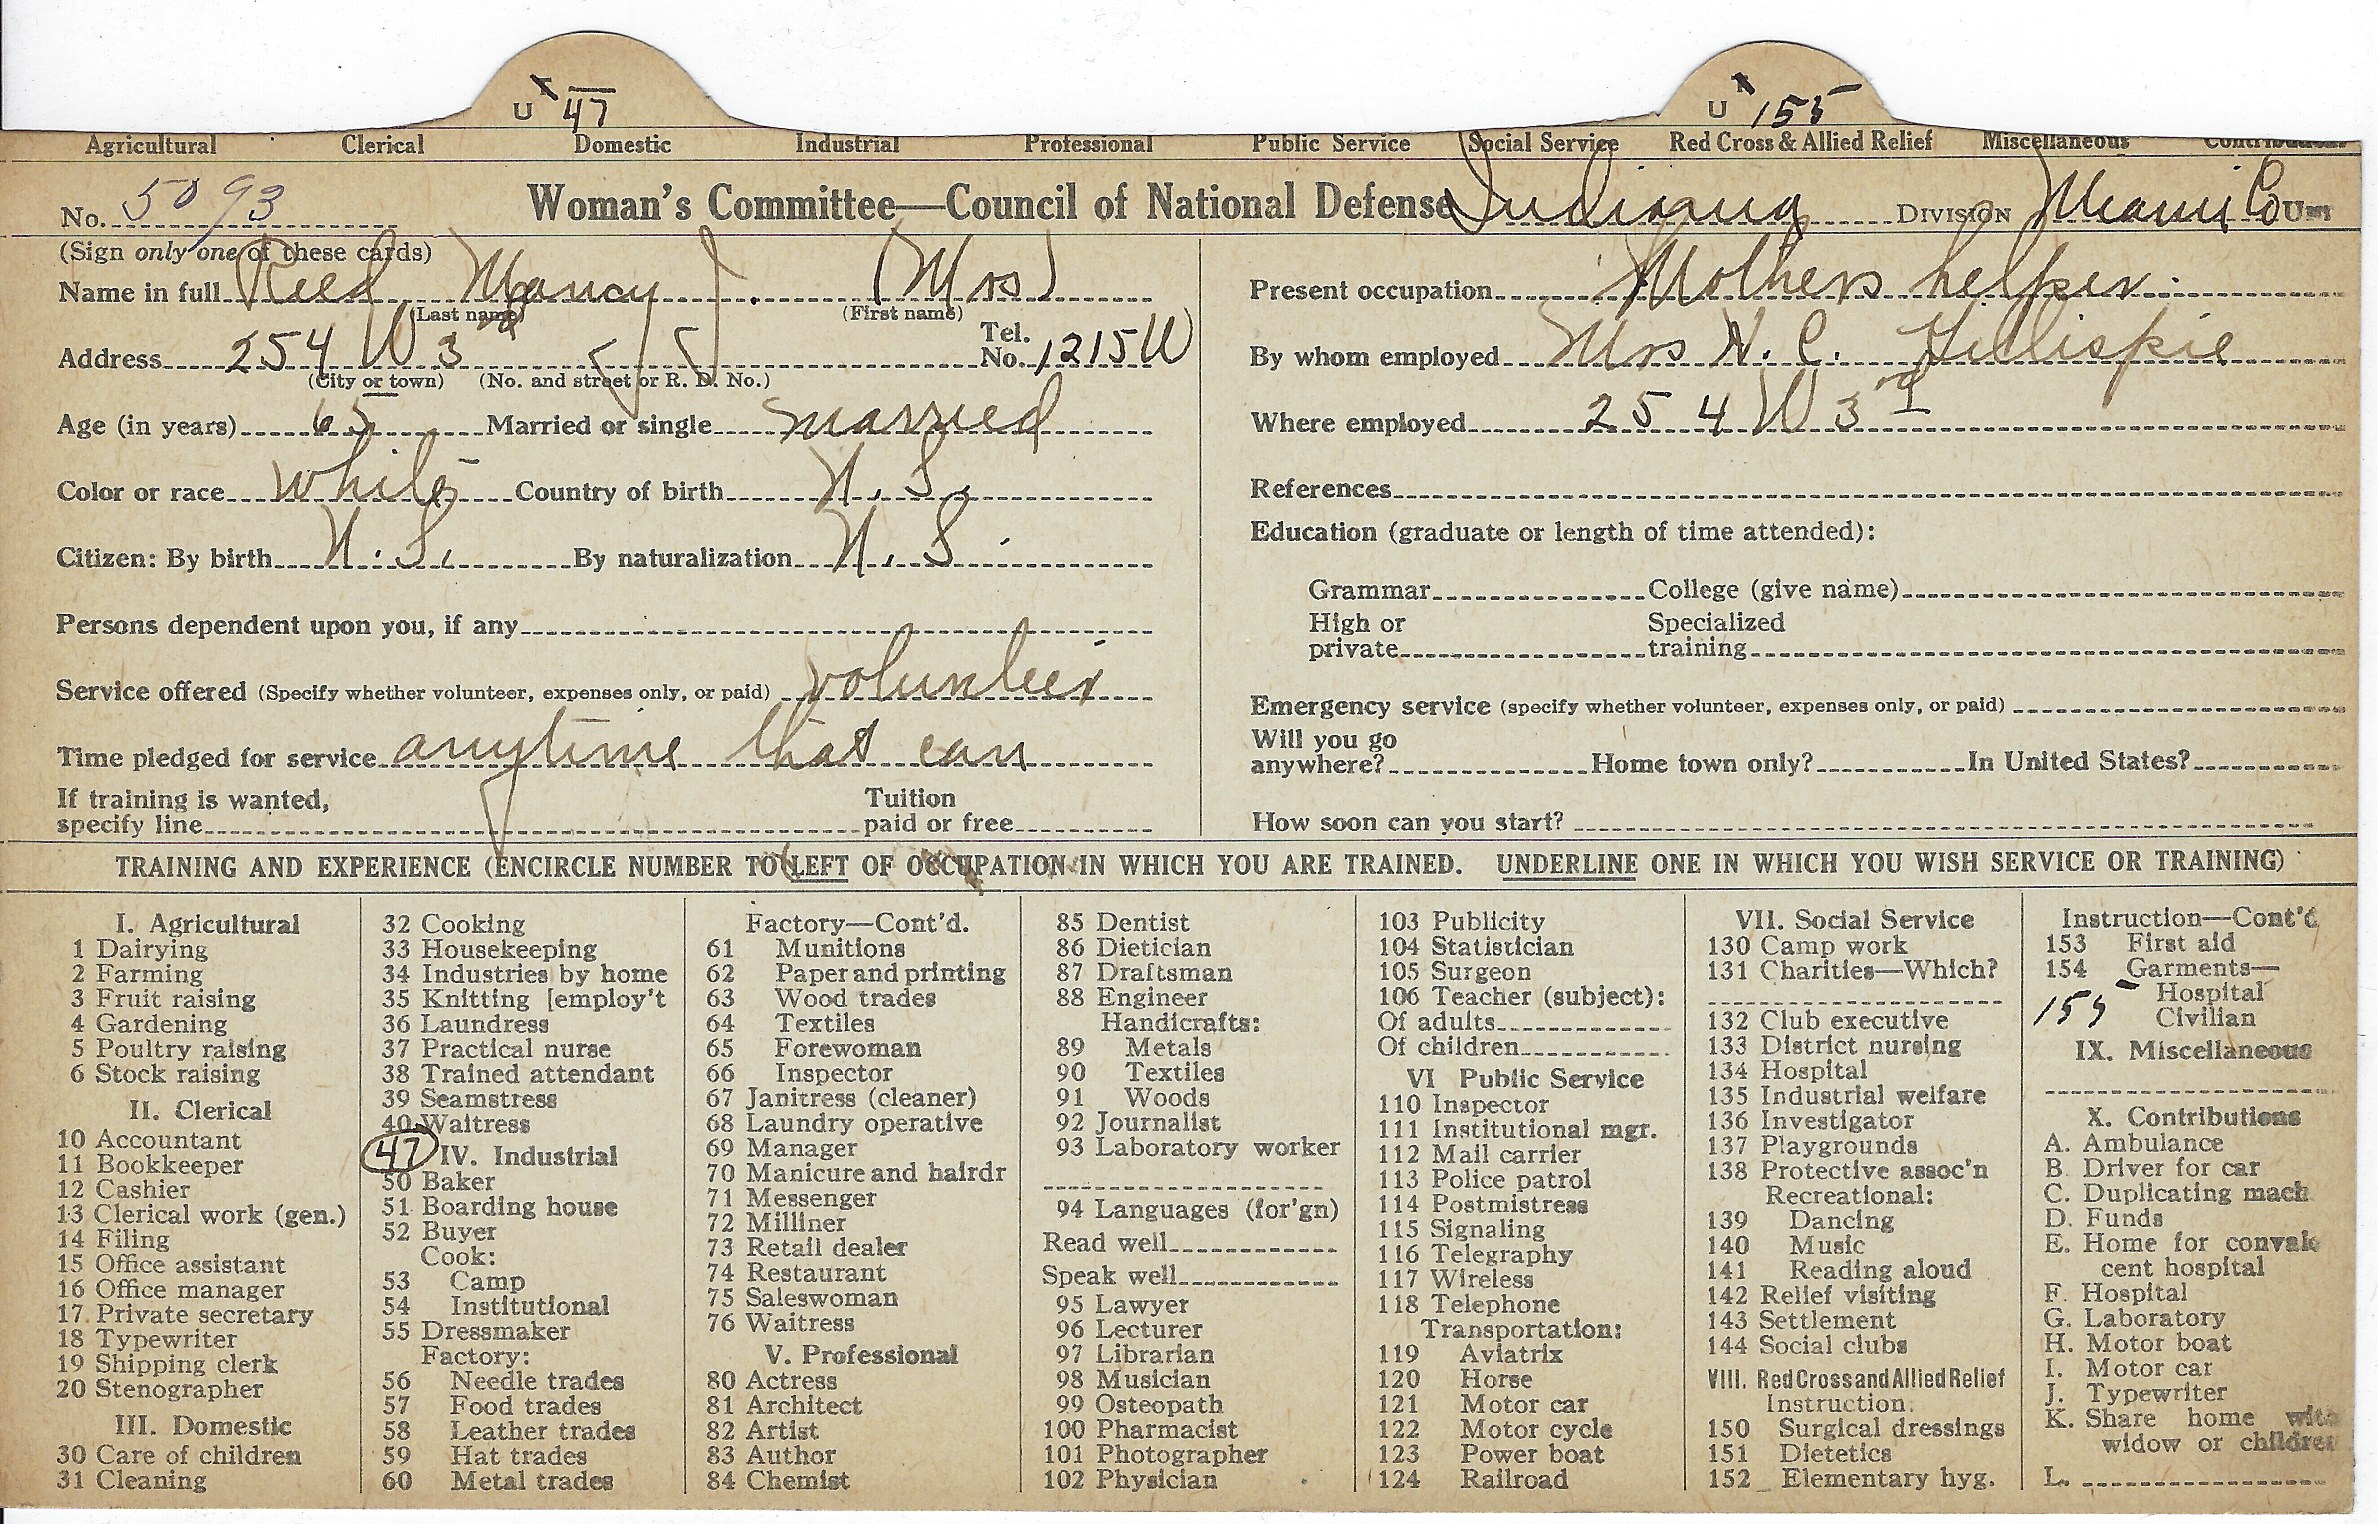 U 47 U 155
Agricultural Clerical Domestic Industrial Professional Public Service Social Service Red Cross & Allied Relief Miscellaneous Contributions
No. 5093 Woman's Committee—Council of National Defense Indiana DIVISION Miami Co UNIT
(Sign only one of these cards)
Name in full Reed Nancy J. (Mrs)
(Last name) (First name)
Address 254 W 3rd Tel. No. 1215W
(City or town) (No. and street or R. D. No.)
Age (in years) 65 Married or single married
Color or race white Country of birth U. S.
Citizen: By birth U. S. By naturalization U. S.
Persons dependent upon you, if any
Service offered (Specify whether volunteer, expenses only, or paid) volunteer
Time pledged for service anytime that can
If training is wanted,
specify line Tuition paid or free
Present occupation Mothers helper.
By whom employed Mrs H. C. Gillispie
Where employed 254 W 3rd
References
Education (graduate or length of time attended):
Grammar College (give name)
High or private Specialized training
Emergency service (specify whether volunteer, expenses only, or paid)
Will you go
anywhere? Home town only? In United States?
How soon can you start?
TRAINING AND EXPERIENCE (ENCIRCLE NUMBER TO LEFT OF OCCUPATION IN WHICH YOU ARE TRAINED. UNDERLINE ONE IN WHICH YOU WISH SERVICE OR TRAINING)
I. Agricultural
1 Dairying
2 Farming
3 Fruit raising
4 Gardening
5 Poultry raising
6 Stock raising
II. Clerical
10 Accountant
11 Bookkeeper
12 Cashier
13 Clerical work (gen.)
14 Filing
15 Office assistant
16 Office manager
17 Private secretary
18 Typewriter
19 Shipping clerk
20 Stenographer
III. Domestic
30 Care of children
31 Cleaning
32 Cooking
33 Housekeeping
34 Industries by home
35 Knitting [employ't
36 Laundress
37 Practical nurse
38 Trained attendant
39 Seamstress
40 Waitress
47 IV. Industrial
50 Baker
51 Boarding house
52 Buyer
Cook:
53 Camp
54 Institutional
55 Dressmaker
Factory:
56 Needle trades
57 Food trades
58 Leather trades
59 Hat trades
60 Metal trades
Factory—Cont'd.
61 Munitions
62 Paper and printing
63 Wood trades
64 Textiles
65 Forewoman
66 Inspector
67 Janitress (cleaner)
68 Laundry operative
69 Manager
70 Manicure and hairdr
71 Messenger
72 Milliner
73 Retail dealer
74 Restaurant
75 Saleswoman
76 Waitress
V. Professional
80 Actress
81 Architect
82 Artist
83 Author
84 Chemist
85 Dentist
86 Dietician
87 Draftsman
88 Engineer
Handicrafts:
89 Metals
90 Textiles
91 Woods
92 Journalist
93 Laboratory worker
94 Languages (for'gn)
Read well
Speak well
95 Lawyer
96 Lecturer
97 Librarian
98 Musician
99 Osteopath
100 Pharmacist
101 Photographer
102 Physician
103 Publicity
104 Statistician
105 Surgeon
106 Teacher (subject):
Of adults
Of children
VI Public Service
110 Inspector
111 Institutional mgr.
112 Mail carrier
113 Police patrol
114 Postmistress
115 Signaling
116 Telegraphy
117 Wireless
118 Telephone
Transportation:
119 Aviatrix
120 Horse
121 Motor car
122 Motor cycle
123 Power boat
124 Railroad
VII. Social Service
130 Camp work
131 Charities—Which?
132 Club executive
133 District nursing
134 Hospital
135 Industrial welfare
136 Investigator
137 Playgrounds
138 Protective assoc'n
Recreational:
139 Dancing
140 Music
141 Reading aloud
142 Relief visiting
143 Settlement
144 Social clubs
VIII. Red Cross and Allied Relief
Instruction:
150 Surgical dressings
151 Dietetics
152 Elementary hyg.
Instruction—Cont'd
153 First aid
154 Garments—
Hospital
155 Civilian
IX. Miscellaneous
X. Contributions
A. Ambulance
B. Driver for car
C. Duplicating mach
D. Funds
E. Home for convales
cent hospital
F. Hospital
G. Laboratory
H. Motor boat
I. Motor car
J. Typewriter
K. Share home with
widow or children
L.